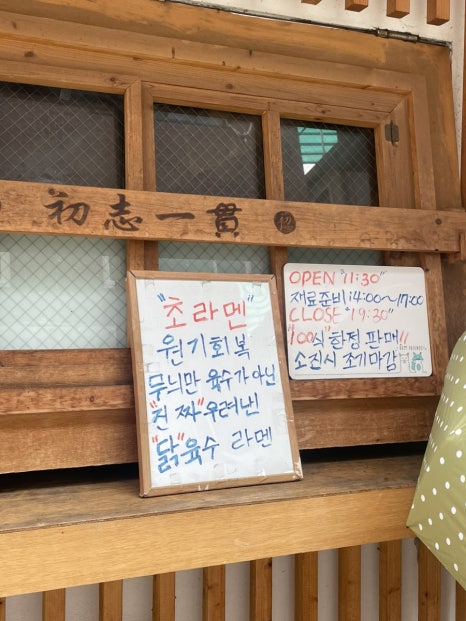 初志一貫 初
"초라멘"
원기회복
무늬만 육수가 아닌
"진짜"우려낸
"닭"육수 라멘
OPEN "11:30"
재료준비:14:00~17:00
CLOSE "19:30"
"100식"한정 판매!!
소진시 조기마감